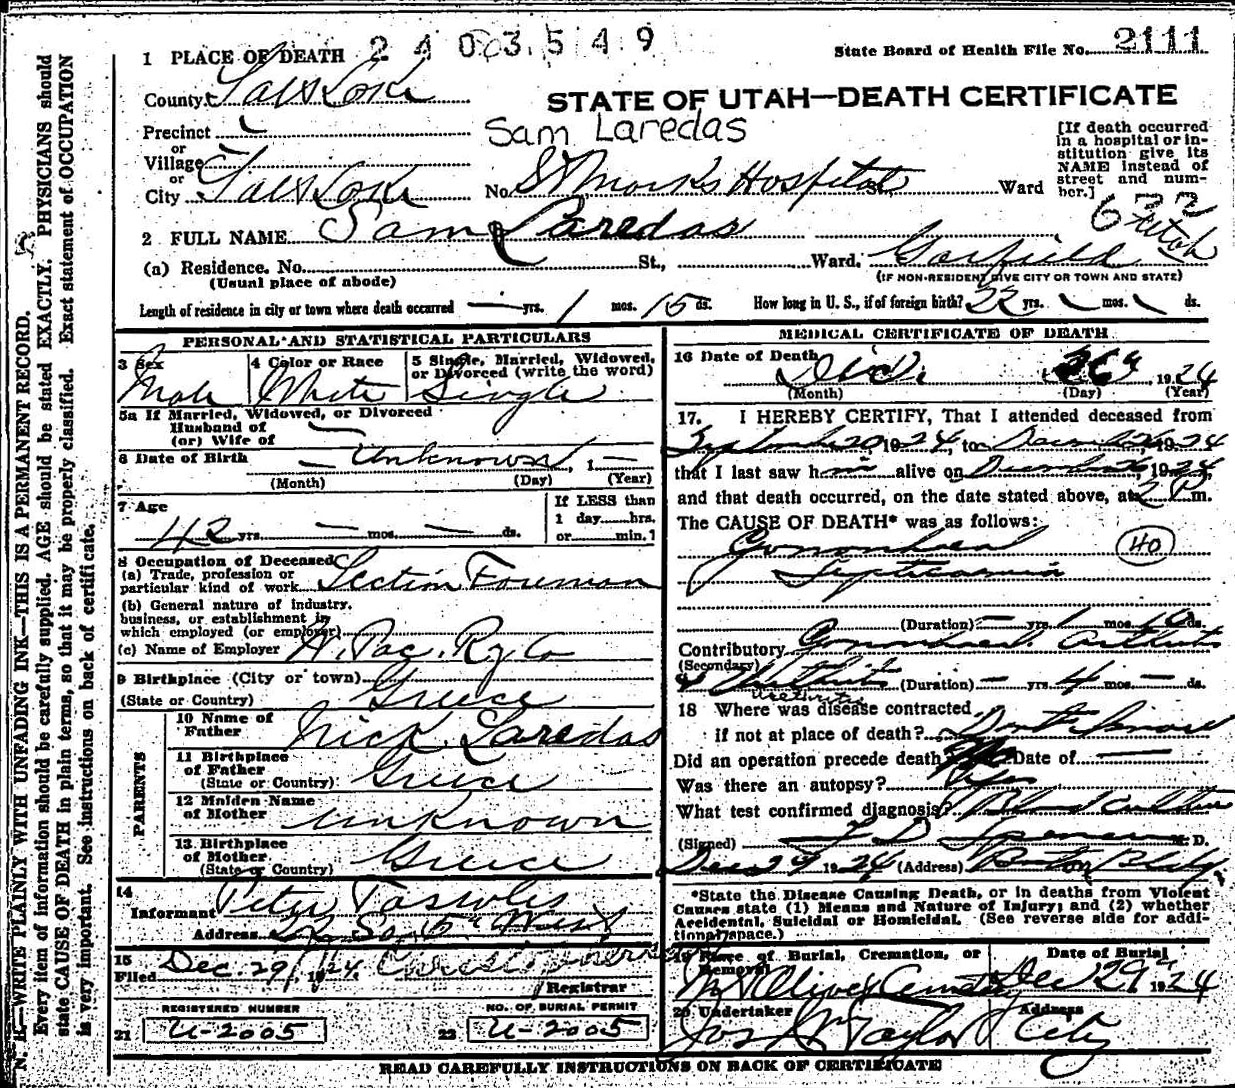 1 PLACE OF DEATH 2403549
State Board of Health File No. 2111
County Salt Lake
STATE OF UTAH—DEATH CERTIFICATE
Precinct
Sam Laredas
or
Village
or
City Salt Lake No. St Marks Hospital St, Ward
[If death occurred
in a hospital or in-
stitution give its
NAME instead of
street and num-
ber.]
2 FULL NAME Sam Laredas
(a) Residence. No. St., Ward. Garfield Utah
(Usual place of abode) (IF NON-RESIDENT GIVE CITY OR TOWN AND STATE)
Length of residence in city or town where death occurred — yrs. 1 mos. 15 ds. How long in U. S., if of foreign birth? 22 yrs. mos. ds.
PERSONAL AND STATISTICAL PARTICULARS
3 Sex Male
4 Color or Race White
5 Single, Married, Widowed,
or Divorced (write the word)
Single
5a If Married, Widowed, or Divorced
Husband of
(or) Wife of —
6 Date of Birth — Unknown, 1—
(Month) (Day) (Year)
7 Age
42 yrs. — mos. — ds.
If LESS than
1 day hrs.
or min.
8 Occupation of Deceased
(a) Trade, profession or
particular kind of work Section Foreman
(b) General nature of industry,
business, or establishment in
which employed (or employer)
(c) Name of Employer W. Pac. Ry Co
9 Birthplace (City or town)
(State or Country) Greece
PARENTS
10 Name of
Father Nick Laredas
11 Birthplace
of Father
(State or Country) Greece
12 Maiden Name
of Mother Unknown
13 Birthplace
of Mother
(State or Country) Greece
14
Informant Peter
Address So. 5th West
15
Filed Dec. 29, 1924
Registrar
REGISTERED NUMBER
21 U-2005
NO. OF BURIAL PERMIT
22 U-2005
MEDICAL CERTIFICATE OF DEATH
16 Date of Death Dec. 26th 1924
(Month) (Day) (Year)
17. I HEREBY CERTIFY, That I attended deceased from
September 20, 1924, to December 26 1924
that I last saw him alive on December 26, 1924,
and that death occurred, on the date stated above, at 2 P m.
The CAUSE OF DEATH* was as follows:
Gonorrheal 40
Septicaemia
(Duration) — yrs. 1 mos. 10 ds.
Contributory Gonorrheal Arthritis
(Secondary)
& Urethritis (Duration) — yrs. 4 mos. — ds.
18 Where was disease contracted
if not at place of death? Don't Know
Did an operation precede death? No Date of —
Was there an autopsy? Yes
What test confirmed diagnosis? Blood Culture
(Signed) F. D. Spencer M. D.
Dec 27 1924 (Address) Boston Bldg.
*State the Disease Causing Death, or in deaths from Violent
Causes state (1) Means and Nature of Injury; and (2) whether
Accidental, Suicidal or Homicidal. (See reverse side for addi-
tional space.)
19 Place of Burial, Cremation, or
Removal
Mt Olivet Cemetery
Date of Burial
Dec 29th 1924
20 Undertaker
Jos Wm Taylor
Address
City
READ CAREFULLY INSTRUCTIONS ON BACK OF CERTIFICATE
N. B.—WRITE PLAINLY WITH UNFADING INK—THIS IS A PERMANENT RECORD.
Every item of information should be carefully supplied. AGE should be stated EXACTLY. PHYSICIANS should
state CAUSE OF DEATH in plain terms, so that it may be properly classified. Exact statement of OCCUPATION
is very important. See instructions on back of certificate.